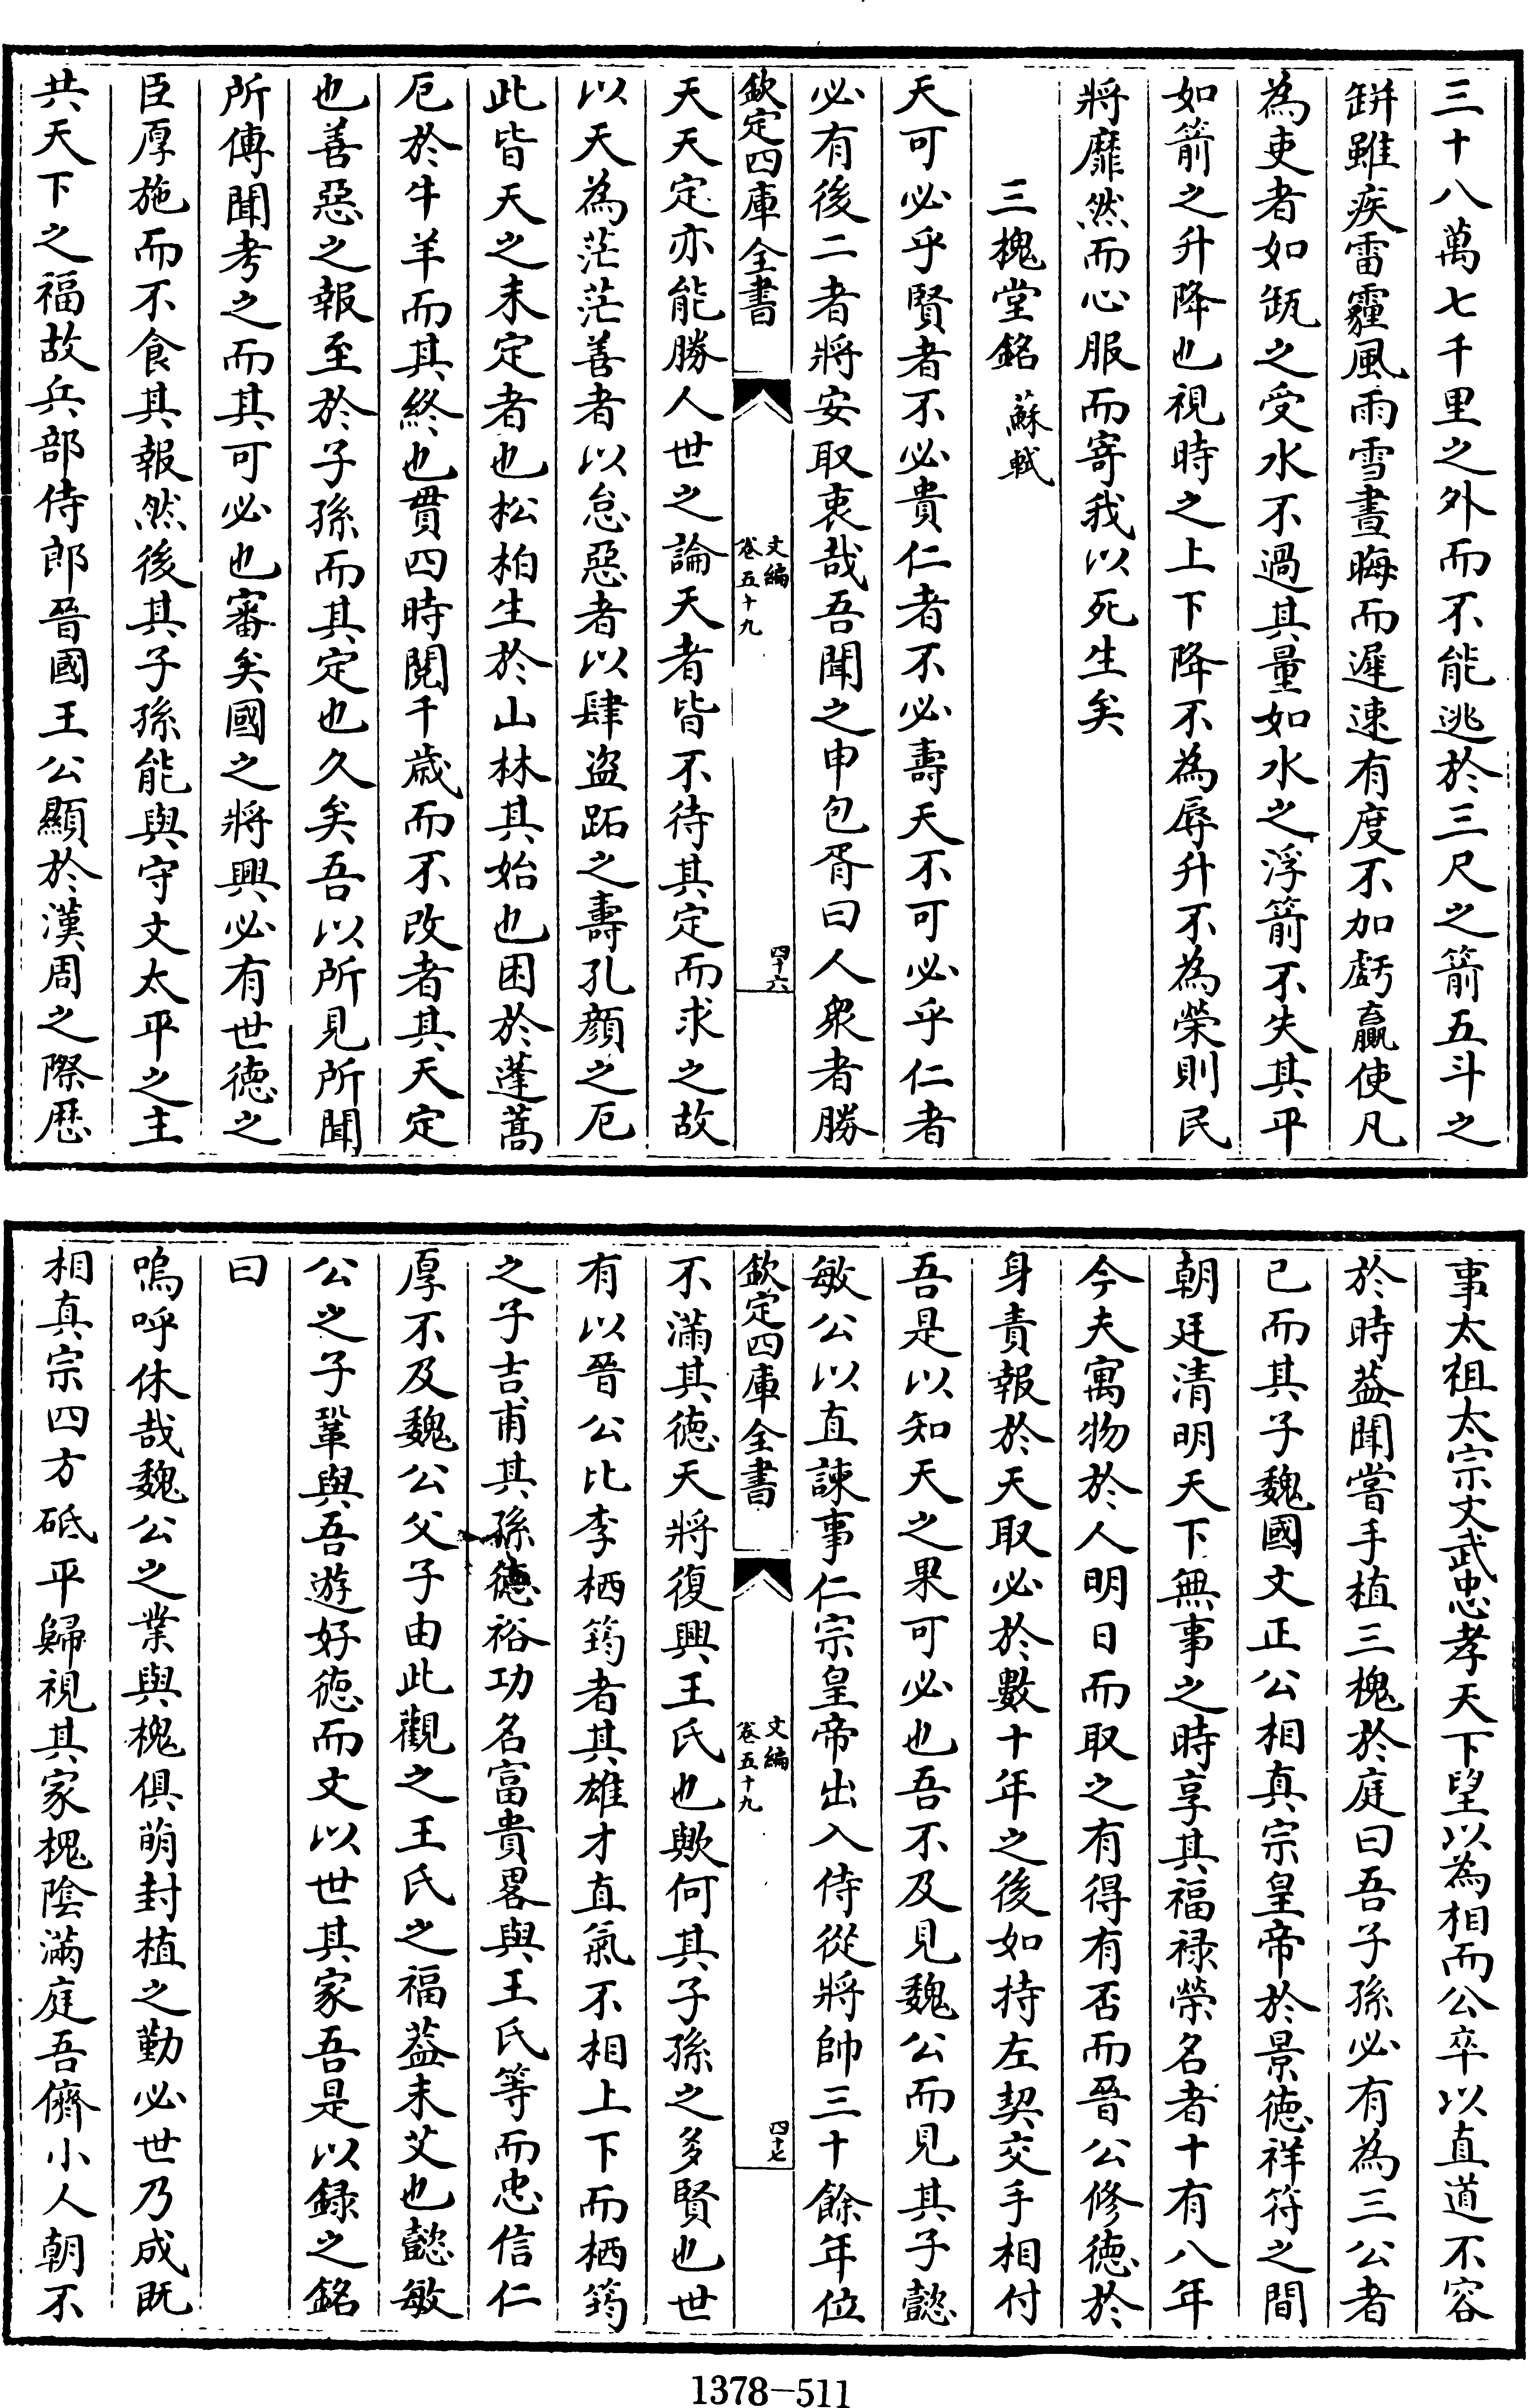 三十八萬七千里之外而不能逃於三尺之箭五斗之
缾雖疾雷霾風雨雪晝晦而遲速有度不加虧贏使凡
為吏者如瓶之受水不過其量如水之浮箭不失其平
如箭之升降也視時之上下降不為辱升不為榮則民
將靡然而心服而寄我以死生矣
三槐堂銘 蘇軾
天可必乎賢者不必貴仁者不必壽天不可必乎仁者
必有後二者將安取衷哉吾聞之申包胥曰人衆者勝
欽定四庫全書 文編 卷五十九 四十六
天天定亦能勝人世之論天者皆不待其定而求之故
以天為茫茫善者以怠惡者以肆盜跖之壽孔顔之厄
此皆天之未定者也松柏生於山林其始也困於蓬蒿
厄於牛羊而其終也貫四時閱千歲而不改者其天定
也善惡之報至於子孫而其定也久矣吾以所見所聞
所傳聞考之而其可必也審矣國之將興必有世德之
臣厚施而不食其報然後其子孫能與守文太平之主
共天下之福故兵部侍郎晉國王公顯於漢周之際歷
事太祖太宗文武忠孝天下望以為相而公卒以直道不容
於時葢聞嘗手植三槐於庭曰吾子孫必有為三公者
已而其子魏國文正公相真宗皇帝於景德祥符之間
朝廷清明天下無事之時享其福祿榮名者十有八年
今夫寓物於人明日而取之有得有否而晉公修德於
身責報於天取必於數十年之後如持左契交手相付
吾是以知天之果可必也吾不及見魏公而見其子懿
敏公以直諫事仁宗皇帝出入侍從將帥三十餘年位
欽定四庫全書 文編 卷五十九 四十七
不滿其德天將復興王氏也歟何其子孫之多賢也世
有以晉公比李栖筠者其雄才直氣不相上下而栖筠
之子吉甫其孫德裕功名富貴畧與王氏等而忠信仁
厚不及魏公父子由此觀之王氏之福葢未艾也懿敏
公之子鞏與吾遊好德而文以世其家吾是以録之銘
曰
嗚呼休哉魏公之業與槐俱萌封植之勤必世乃成既
相真宗四方砥平歸視其家槐陰滿庭吾儕小人朝不
1378-511